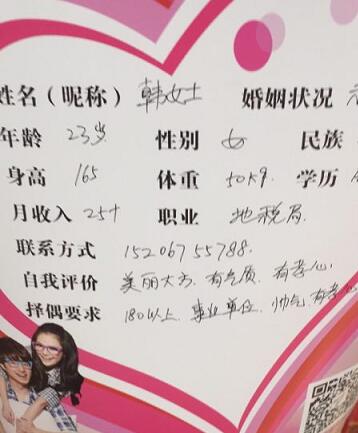 姓名（昵称） 韩女士 婚姻状况
年龄 23岁 性别 女 民族
身高 165 体重 50kg 学历
月收入 25十 职业 地税局
联系方式 15206755788
自我评价 美丽大方、有气质、有孝心
择偶要求 180以上、事业单位、帅气、有孝心